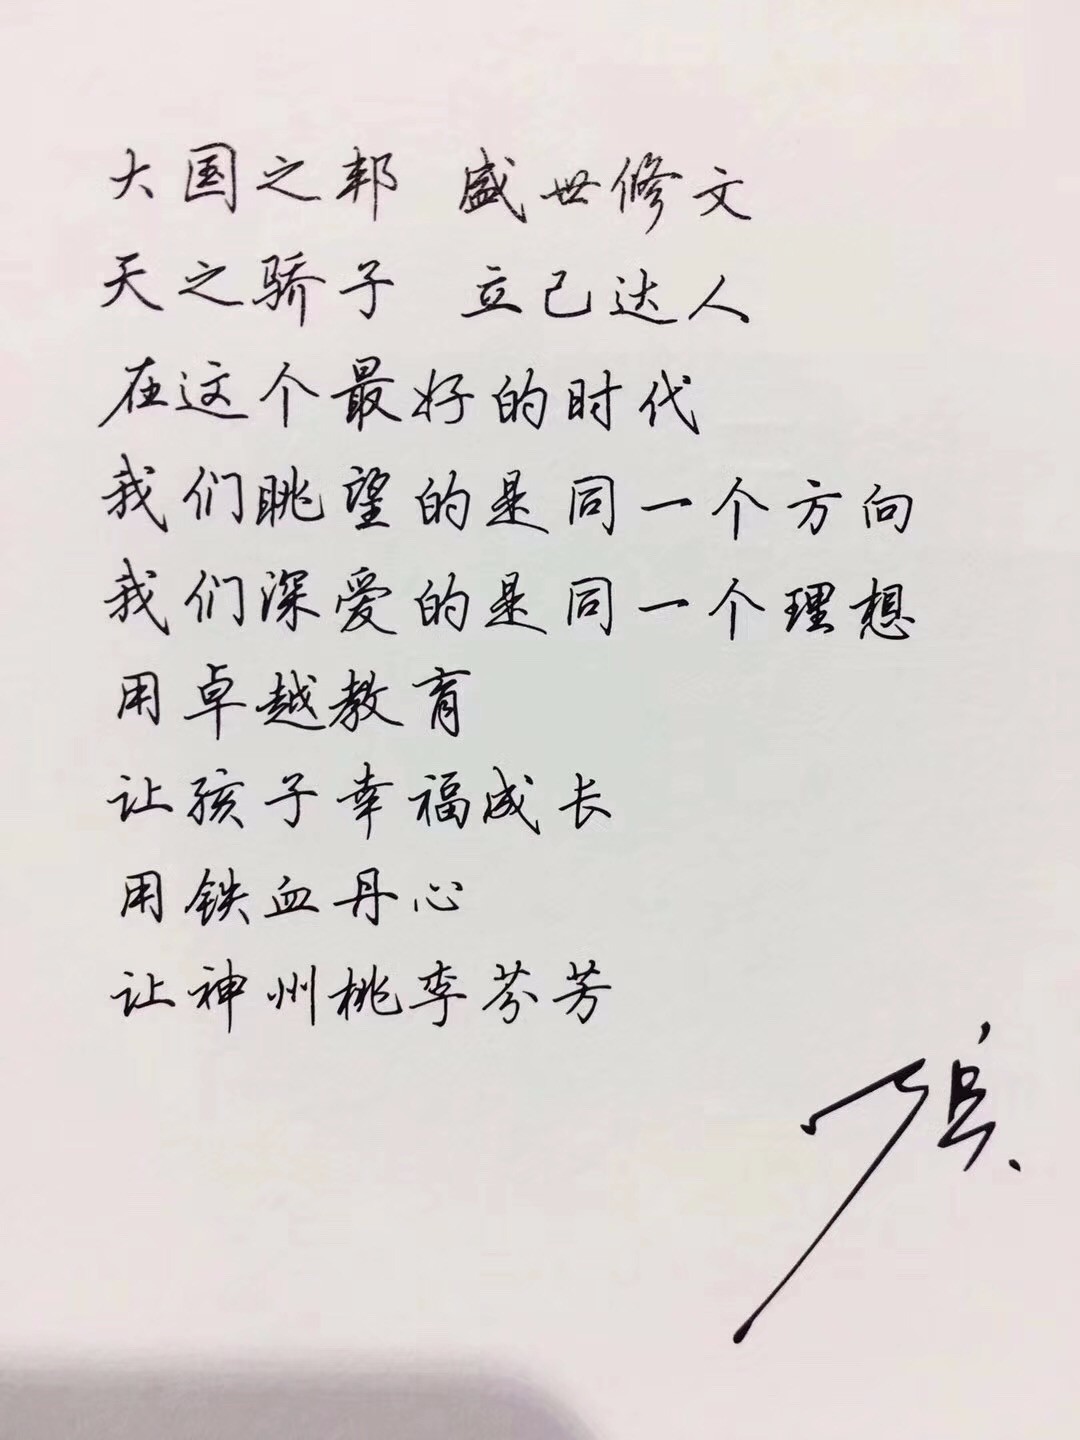 大国之邦 盛世修文
天之骄子 立己达人
在这个最好的时代
我们眺望的是同一个方向
我们深爱的是同一个理想
用卓越教育
让孩子幸福成长
用铁血丹心
让神州桃李芬芳